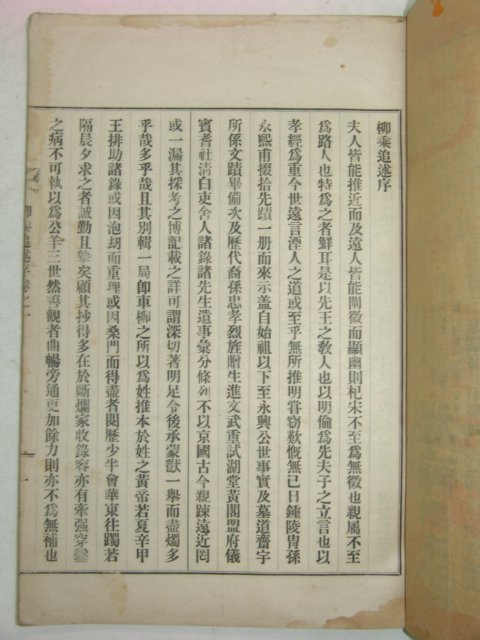 柳乘追述序
夫人皆能推近而及遠人皆能闡微而顯幽則杞宋不至爲無徵也親屬不至
爲路人也特爲之者鮮耳是以先王之敎人也以明倫爲先夫子之立言也以
孝經爲重今世遠言湮人之道或至乎無所推明嘗窃歎慨無已日鍾陵胄孫
永熙甫掇拾先蹟一册而來示盖自始祖以下至永興公世事實及墓道齋宇
所係文蹟畢備次及歷代裔孫忠孝烈旌贈生進文武重試湖堂黃閣盟府儀
賓耆社淸白吏舍人諸錄諸先生遺事彙分條列不以京國古今親踈遠近罔
或一漏其採考之博記載之詳可謂深切著明足令後承蒙獣一舉而盡燭多
乎哉多乎哉且其別輯一局卽車柳之所以爲姓推本於姓之黃帝若夏辛甲
王排助諸錄或因泡刼而重理或因桑門而得盡者閱歷少半會華東往躅若
隔晨夕求之者誠勤且摯矣顧其抄得多在於斷爛家收錄容亦有牽强穿鑿
之病不可執以爲公羊三世然善觀者曲暢旁通更加餘力則亦不爲無補也